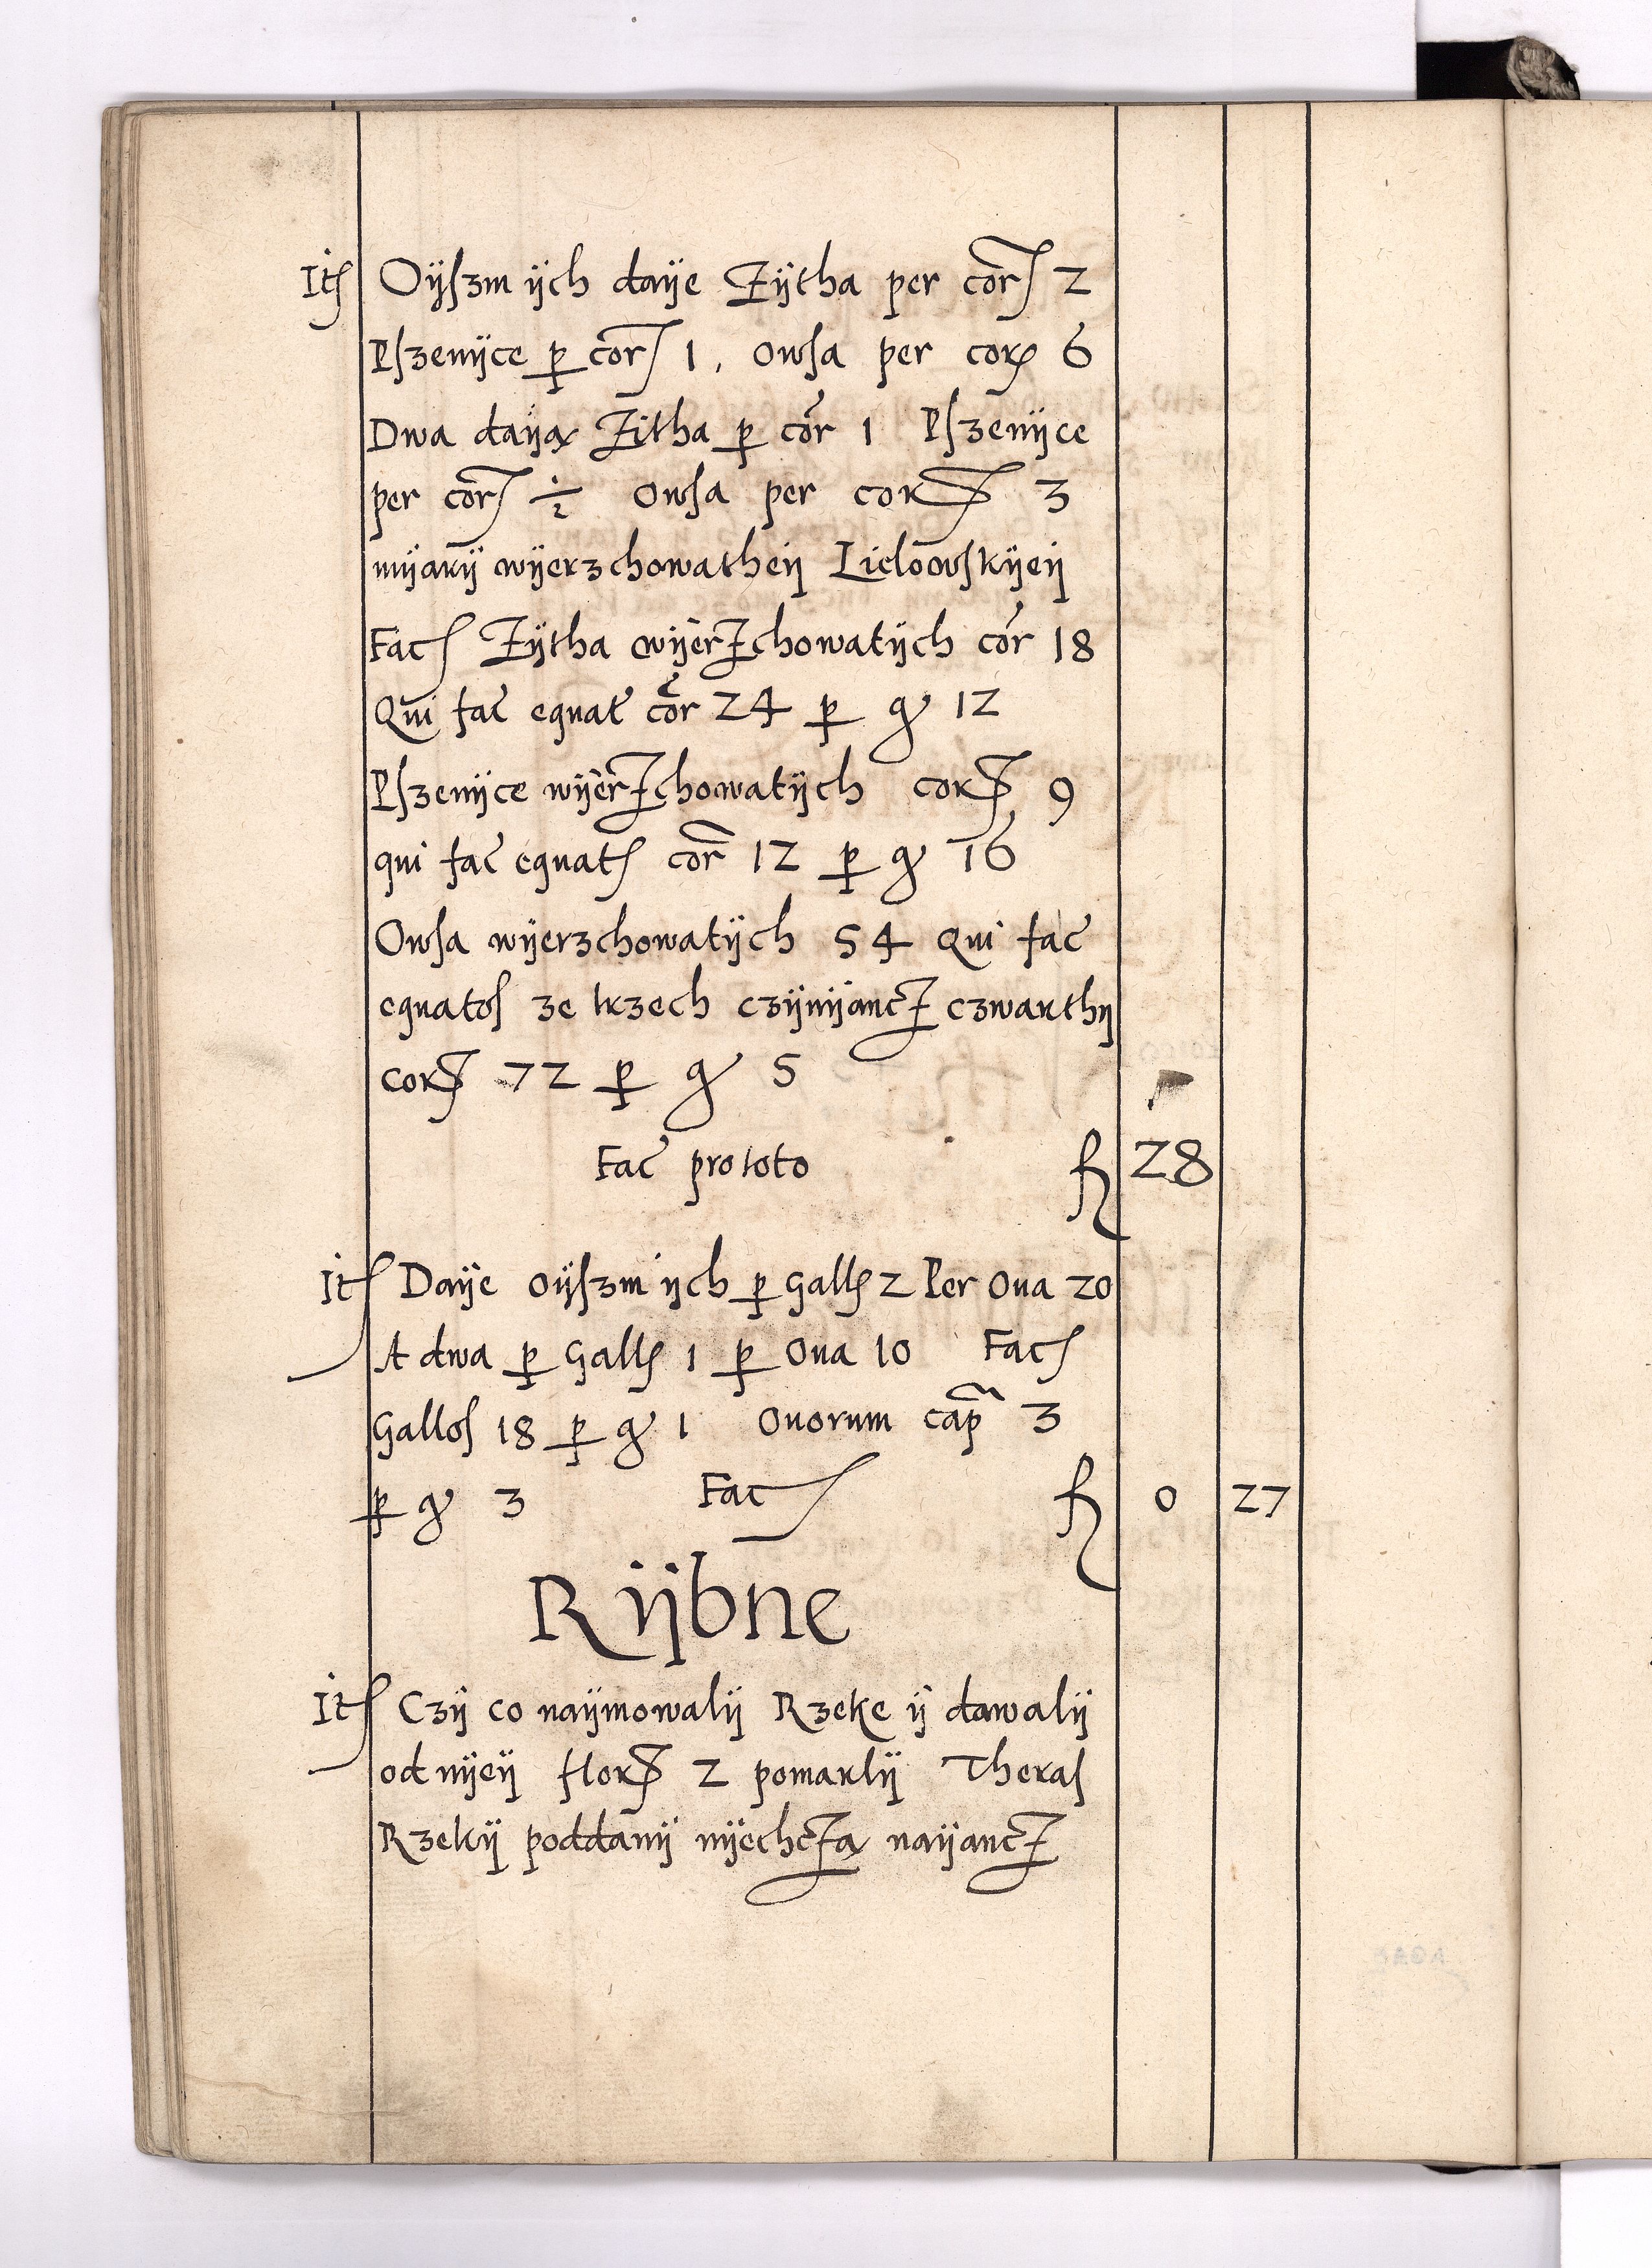 Itꝭ Oÿſzm ÿch daÿe Zÿtha per corꝭ 2
Pſzenÿce ꝑ corꝭ 1, owſa per corꝭ 6
Dwa daÿą Zitha ꝑ cor̃ 1 Pſzenÿce
per corꝭ ½ owſa per corꝭ 3
mÿarÿ wÿerzchowatheÿ Lidowſkÿeÿ
Facꝭ Zÿtha wÿerzchowatÿch cor̃ 18
Qui fac̃ equat̃ cor̃ 24 ꝑ gͬ 12
Pſzenÿce wÿerzchowatÿch corꝭ 9
qui fac̃ equatꝭ cor̃ 12 ꝑ gͬ 16
Owſa wÿerzchowatÿch 54 Qui fac̃
equatoſ ze trzech czÿnÿancz czwarthÿ
corꝭ 72 ꝑ gͬ 5
Fac̃ pro toto fl 28
Itꝭ Daÿe oÿſzm ÿch ꝑ Gallꝭ 2 Per Oua 20
A dwa ꝑ Gallꝭ 1 ꝑ Oua 10 Facꝭ
Galloſ 18 ꝑ gͬ 1 Ouorum cap̃ 3
ꝑ gͬ 3 Facꝭ fl 0 27
Rÿbne
Itꝭ Czÿ co naÿmowalÿ Rzeke ÿ dawalÿ
od nÿeÿ florꝭ 2 pomarlÿ Theraſ
Rzekÿ poddanÿ nÿechczą naÿancz